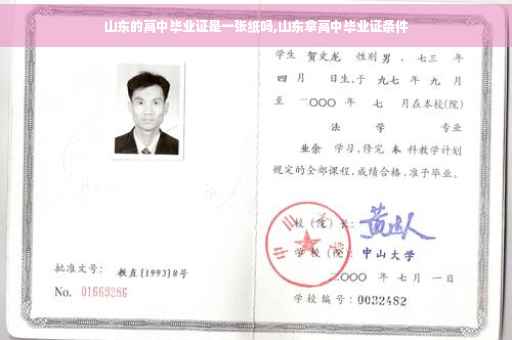 山东的高中毕业证是一张纸吗,山东拿高中毕业证条件
学生 贺文龙 性别 男 、七三 年
四 月 日生,于 九七 年 九 月
至 二〇〇〇 年 七 月在本校(院)
法 学 专业
业余 学习,修完 本 科教学计划
规定的全部课程,成绩合格,准予毕业。
校 (院) 长:
学 校 (院): 中山大学
二〇〇〇 年 七 月 一 日
学校编号: 0032482
批准文号: 教直[1993]8号
No. 01669286
中山大学